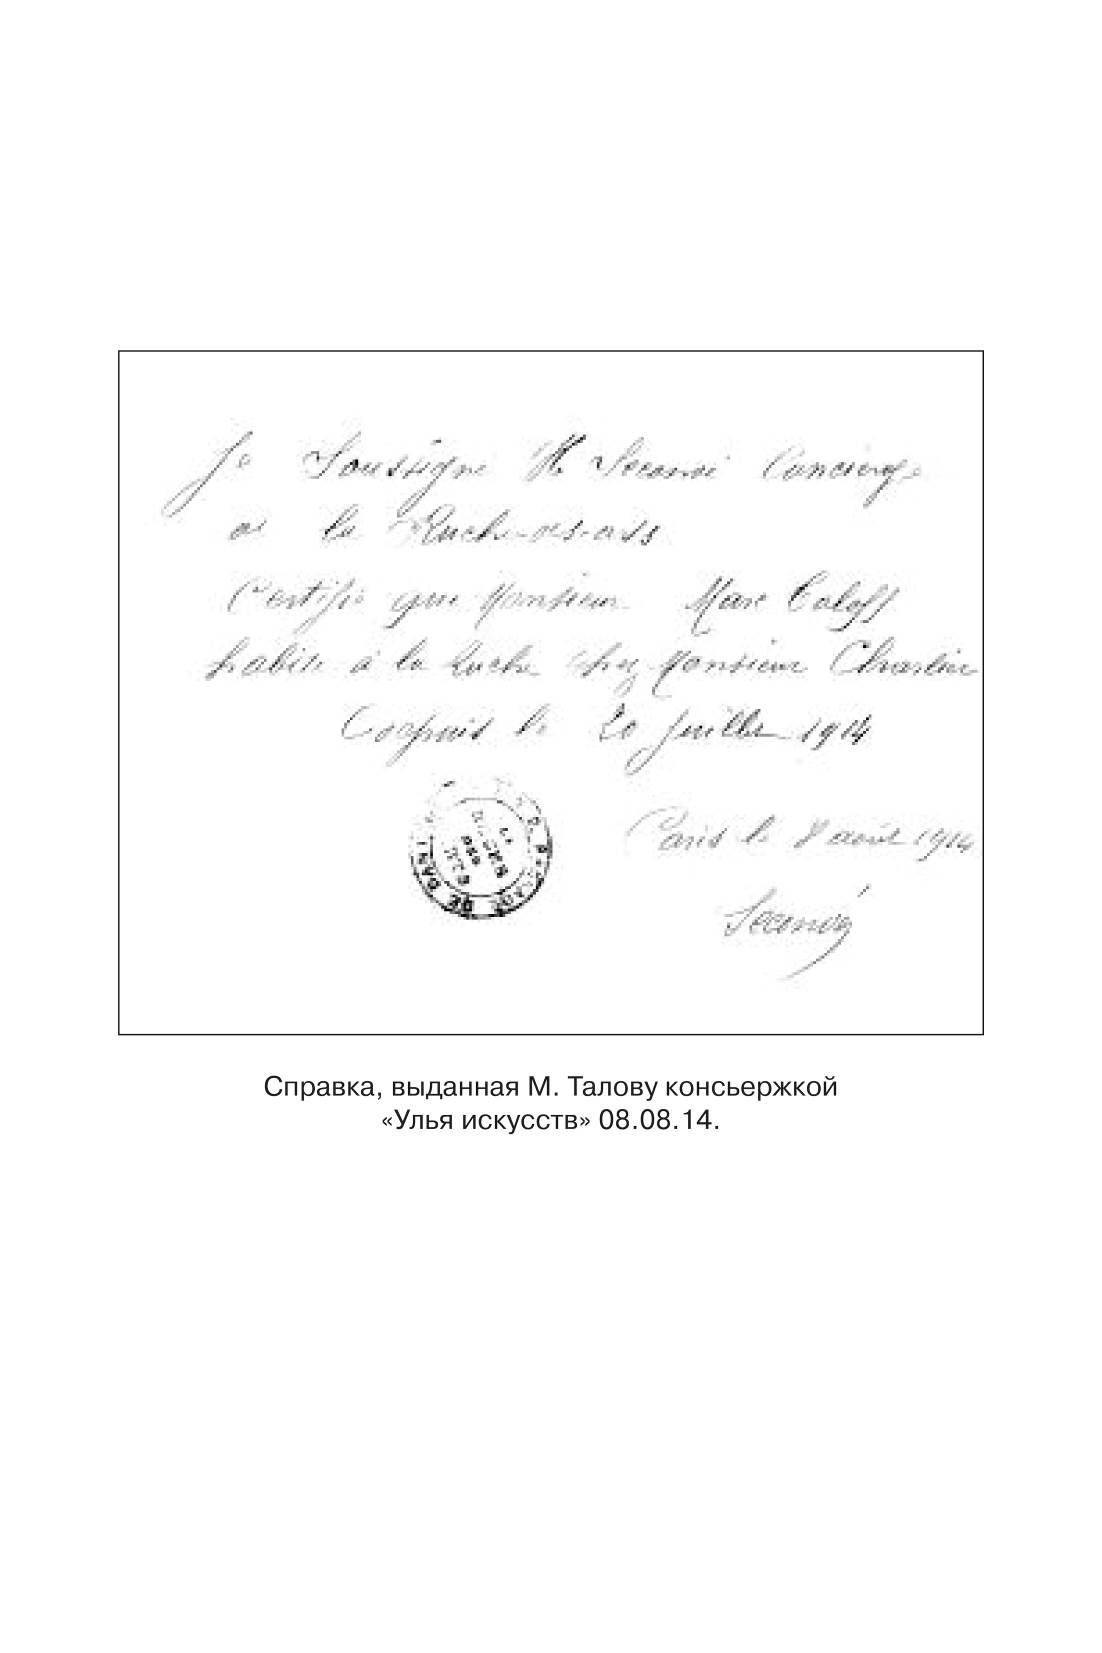 Je Soussigné Concierge
a la Ruche-des-arts
Certifie que Monsieur Marc Taloff
habite à la Ruche chez Monsieur
Depuis le 20 Juillet 1914
Paris le 8 août 1914
Справка, выданная М. Талову консьержкой
«Улья искусств» 08.08.14.